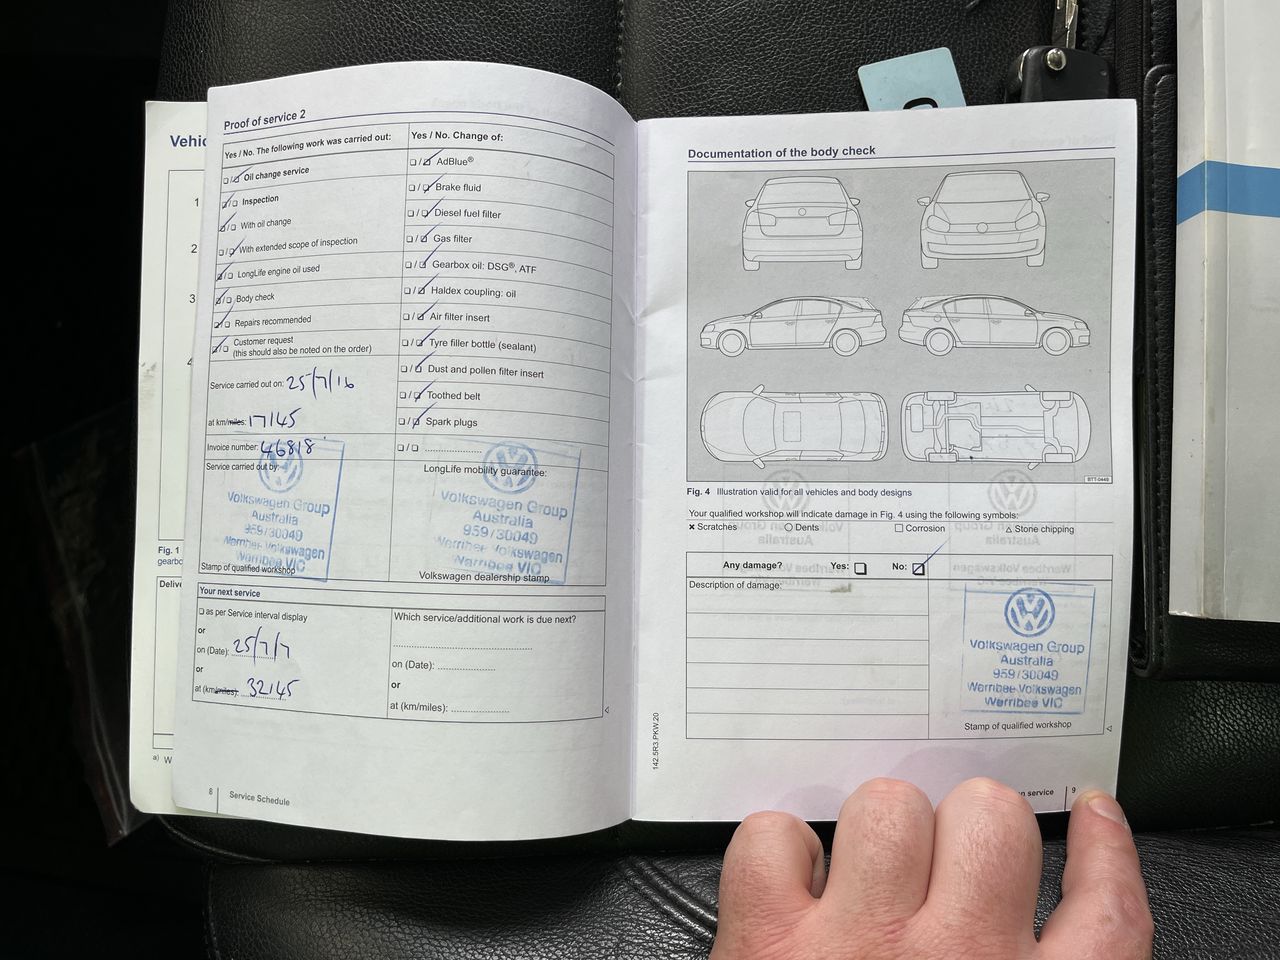 Vehic
1
2
3
4
Fig. 1
gearbo
Delive
a) W
Proof of service 2
Yes / No. The following work was carried out:
☐/☑ Oil change service
☑/☐ Inspection
☑/☐ With oil change
☐/☑ With extended scope of inspection
☑/☐ LongLife engine oil used
☑/☐ Body check
☑/☐ Repairs recommended
☑/☐ Customer request
(this should also be noted on the order)
Service carried out on: 25/7/16
at km/miles: 17145
Invoice number: 46818
Service carried out by:
Volkswagen Group
Australia
959/30049
Werribee Volkswagen
Werribee VIC
Stamp of qualified workshop
Yes / No. Change of:
☐/☑ AdBlue®
☐/☑ Brake fluid
☐/☑ Diesel fuel filter
☐/☑ Gas filter
☐/☑ Gearbox oil: DSG®, ATF
☐/☑ Haldex coupling: oil
☐/☑ Air filter insert
☐/☑ Tyre filler bottle (sealant)
☐/☑ Dust and pollen filter insert
☐/☑ Toothed belt
☐/☑ Spark plugs
☐/☐ ....................
LongLife mobility guarantee:
Volkswagen Group
Australia
959/30049
Werribee Volkswagen
Werribee VIC
Volkswagen dealership stamp
Your next service
☐ as per Service interval display
or
on (Date): 25/7/7
or
at (km/miles): 32145
Which service/additional work is due next?
on (Date): ....................
or
at (km/miles): ....................
8 Service Schedule
Documentation of the body check
BTT-0449
Fig. 4 Illustration valid for all vehicles and body designs
Your qualified workshop will indicate damage in Fig. 4 using the following symbols:
× Scratches ○ Dents ☐ Corrosion △ Stone chipping
Any damage? Yes: ☐ No: ☑
Description of damage:
Volkswagen Group
Australia
959/30049
Werribee Volkswagen
Werribee VIC
Stamp of qualified workshop
142.5R3.PKW.20
n service 9